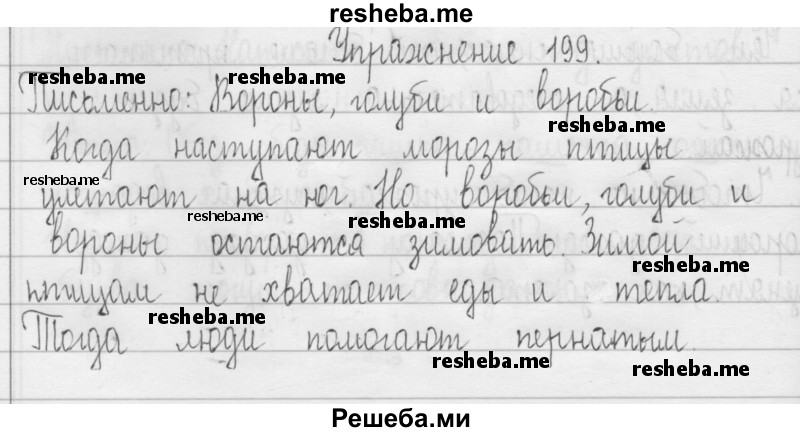 resheba.me
Упражнение 199.
resheba.me resheba.me
Письменно: Вороны, голуби и воробьи.
resheba.me
Когда наступают морозы птицы
resheba.me
улетают на юг. Но воробьи, голуби и
resheba.me
вороны остаются зимовать. Зимой
resheba.me
птицам не хватает еды и тепла.
resheba.me
Тогда люди помогают пернатым.
resheba.me
resheba.me
Решеба.ми